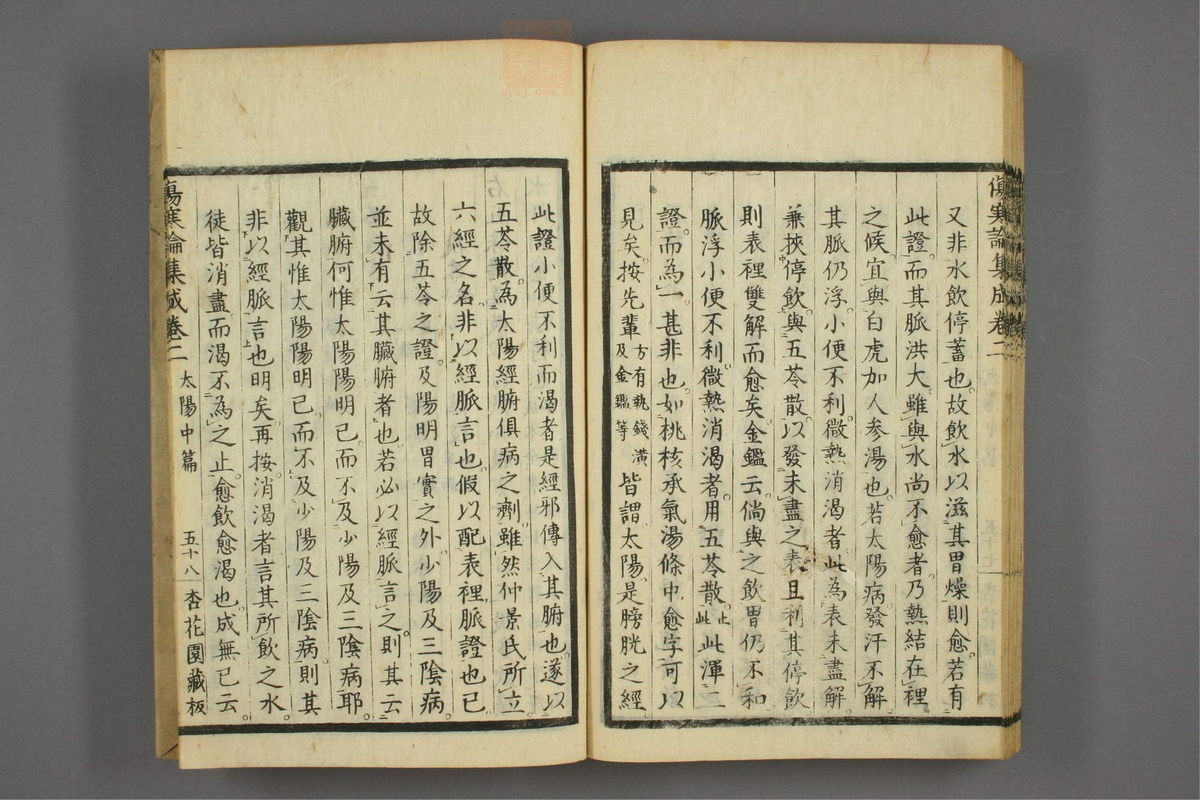 傷寒論集成卷二
又非水飲停蓄也故飲水以滋其胃燥則愈若有
此證而其脈洪大雖與水尚不愈者乃熱結在裡
之候宜與白虎加人參湯也若太陽病發汗不解
其脈仍浮小便不利微熱消渴者此為表未盡解
兼挾停飲與五苓散以發未盡之表且利其停飲
則表裡雙解而愈矣金鑑云倘與之飲胃仍不和
脈浮小便不利微熱消渴者用五苓散止此此渾二
證而為一甚非也如桃核承氣湯條中愈字可以
見矣按先輩方有執錢潢及金鑑等皆謂太陽是膀胱之經
此證小便不利而渴者是經邪傳入其腑也遂以
五苓散為太陽經腑俱病之劑雖然仲景氏所立
六經之名非以經脈言也假以配表裡脈證也已
故除五苓之證及陽明胃實之外少陽及三陰病
並未有云其臟腑者也若必以經脈言之則其云
臟腑何惟太陽陽明已而不及少陽及三陰病耶
觀其惟太陽陽明已而不及少陽及三陰病則其
非以經脈言也明矣再按消渴者言其所飲之水
徒皆消盡而渴不為之止愈飲愈渴也成無已云
傷寒論集成卷二 太陽中篇 五十八 杏花園藏板